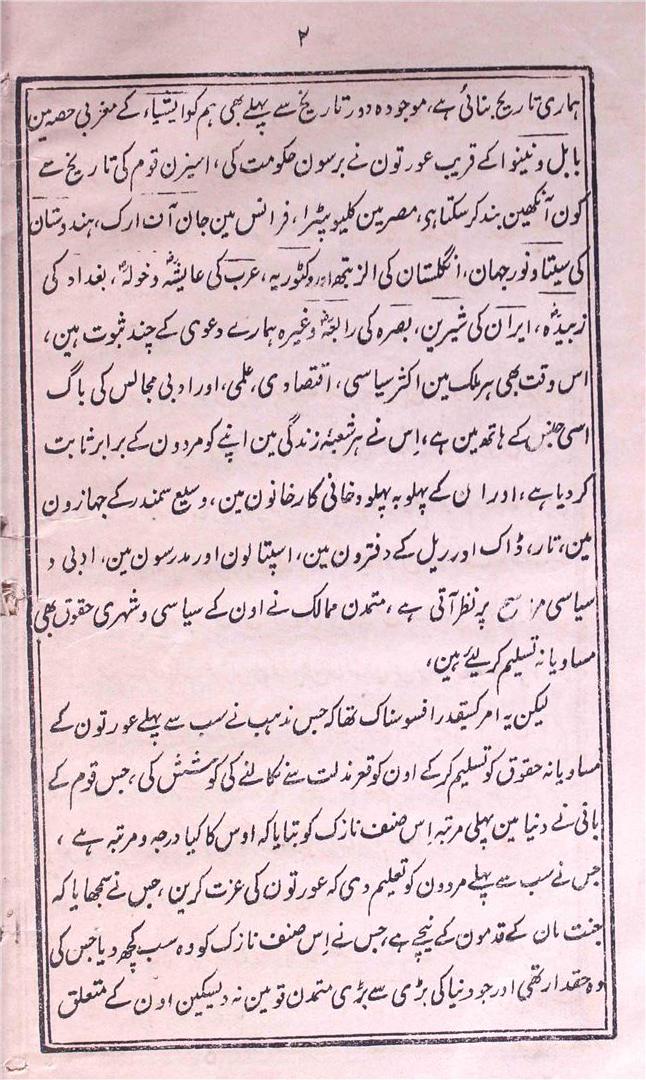 ۲
ہماری تاریخ بنائی ہے، موجودہ دور تاریخ سے پہلے بھی ہم کو ایشیاء کے مغربی حصہ مین
بابل و نینوا کے قریب عورتون نے برسون حکومت کی، امیزن قوم کی تاریخ سے
کون آنکھین بند کر سکتا ہی، مصر مین کلیوپٹرا، فرانس مین جان آف ارک، ہندوستان
کی سیتا و نورجہان، انگلستان کی الزبتھ اور وکٹوریہ، عرب کی عایشہؓ و خولہؓ، بغداد کی
زبیدہؒ، ایران کی شیرین، بصرہ کی رابعہؒ وغیرہ ہمارے دعوی کے چند ثبوت ہین،
اس وقت بھی ہر ملک مین اکثر سیاسی، اقتصادی، علمی، اور ادبی مجالس کی باگ
اسی جنس کے ہاتھ مین ہے، اس نے ہر شعبۂ زندگی مین اپنے کو مردون کے برابر ثابت
کر دیا ہے، اور ان کے پہلو بہ پہلو دخانی کارخانون مین، وسیع سمندر کے جہازون
مین، تار، ڈاک اور ریل کے دفترون مین، اسپتالون اور مدرسون مین، ادبی و
سیاسی پر نظر آتی ہے، متمدن ممالک نے اون کے سیاسی و شہری حقوق بھی
مساویانہ تسلیم کر لیئے ہین،
لیکن یہ امر کسیقدر افسوسناک تھا کہ جس مذہب نے سب سے پہلے عورتون کے
مساویانہ حقوق کو تسلیم کر کے اون کو قعر مذلت سے نکالنے کی کوشش کی، جس قوم کے
بانی نے دنیا مین پہلی مرتبہ اِس صنف نازک کو بتایا کہ اوس کا کیا درجہ و مرتبہ ہے،
جس نے سب سے پہلے مردون کو تعلیم دی کہ عورتون کی عزت کرین، جس نے سمجھایا کہ
جنت مان کے قدمون کے نیچے ہے، جس نے اِس صنف نازک کو وہ سب کچھ دیا جس کی
وہ حقدار تھی اور جو دنیا کی بڑی سے بڑی متمدن قومین نہ دیسکین اون کے متعلق